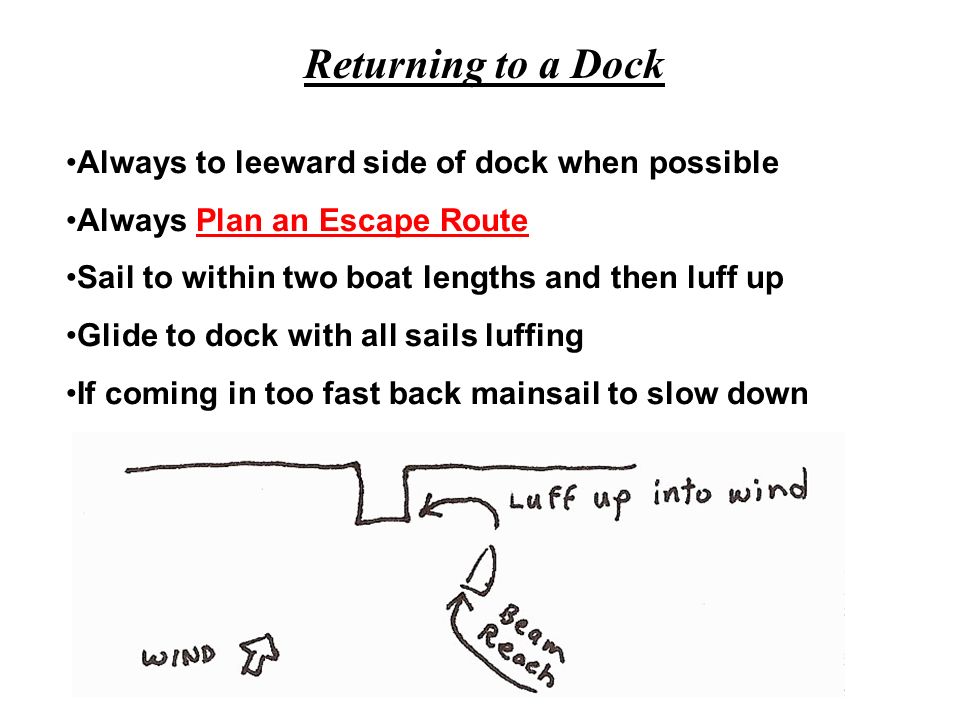 Returning to a Dock
•Always to leeward side of dock when possible
•Always Plan an Escape Route
•Sail to within two boat lengths and then luff up
•Glide to dock with all sails luffing
•If coming in too fast back mainsail to slow down
Luff up into wind
Beam
Reach
WIND